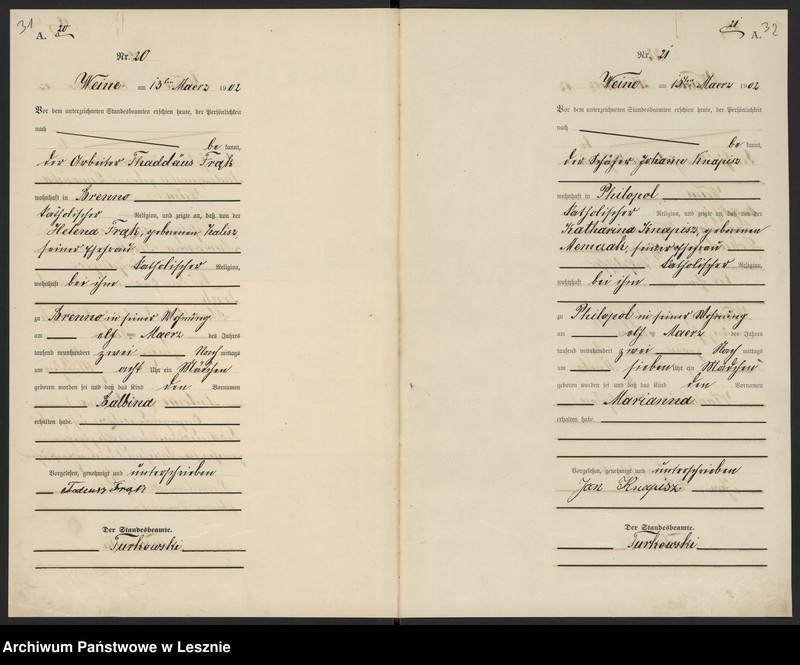 31
A. 20
Nr. 20
Weine am 15ten Maerz 1902
Vor dem unterzeichneten Standesbeamten erschien heute, der Persönlichkeit
nach
be kannt,
der Arbeiter Thaddäus Frąk
wohnhaft in Brenno
katholischer Religion, und zeigte an, daß von der
Helena Frąk, geborenen Kalisz
seiner Ehefrau
katholischer Religion,
wohnhaft bei ihm
zu Brenno in seiner Wohnung
am elf Maerz des Jahres
tausend neunhundert zwei Nach mittags
um acht Uhr ein Mädchen
geboren worden sei und daß das Kind den Vornamen
Balbina
erhalten habe.
Vorgelesen, genehmigt und unterschrieben
Tadeusz Frąk
Der Standesbeamte.
Turkowski
21
A. 32
Nr. 21
Weine am 15ten Maerz 1902
Vor dem unterzeichneten Standesbeamten erschien heute, der Persönlichkeit
nach
be kannt,
der Schäfer Johann Knapisz
wohnhaft in Philopol
katholischer Religion, und zeigte an, daß von der
Katharina Knapisz, geborenen
seiner Ehefrau
katholischer Religion,
wohnhaft bei ihm
zu Philopol in seiner Wohnung
am elf Maerz des Jahres
tausend neunhundert zwei Nach mittags
um sieben Uhr ein Mädchen
geboren worden sei und daß das Kind den Vornamen
Marianna
erhalten habe.
Vorgelesen, genehmigt und unterschrieben
Jan Knapisz
Der Standesbeamte.
Turkowski
Archiwum Państwowe w Lesznie